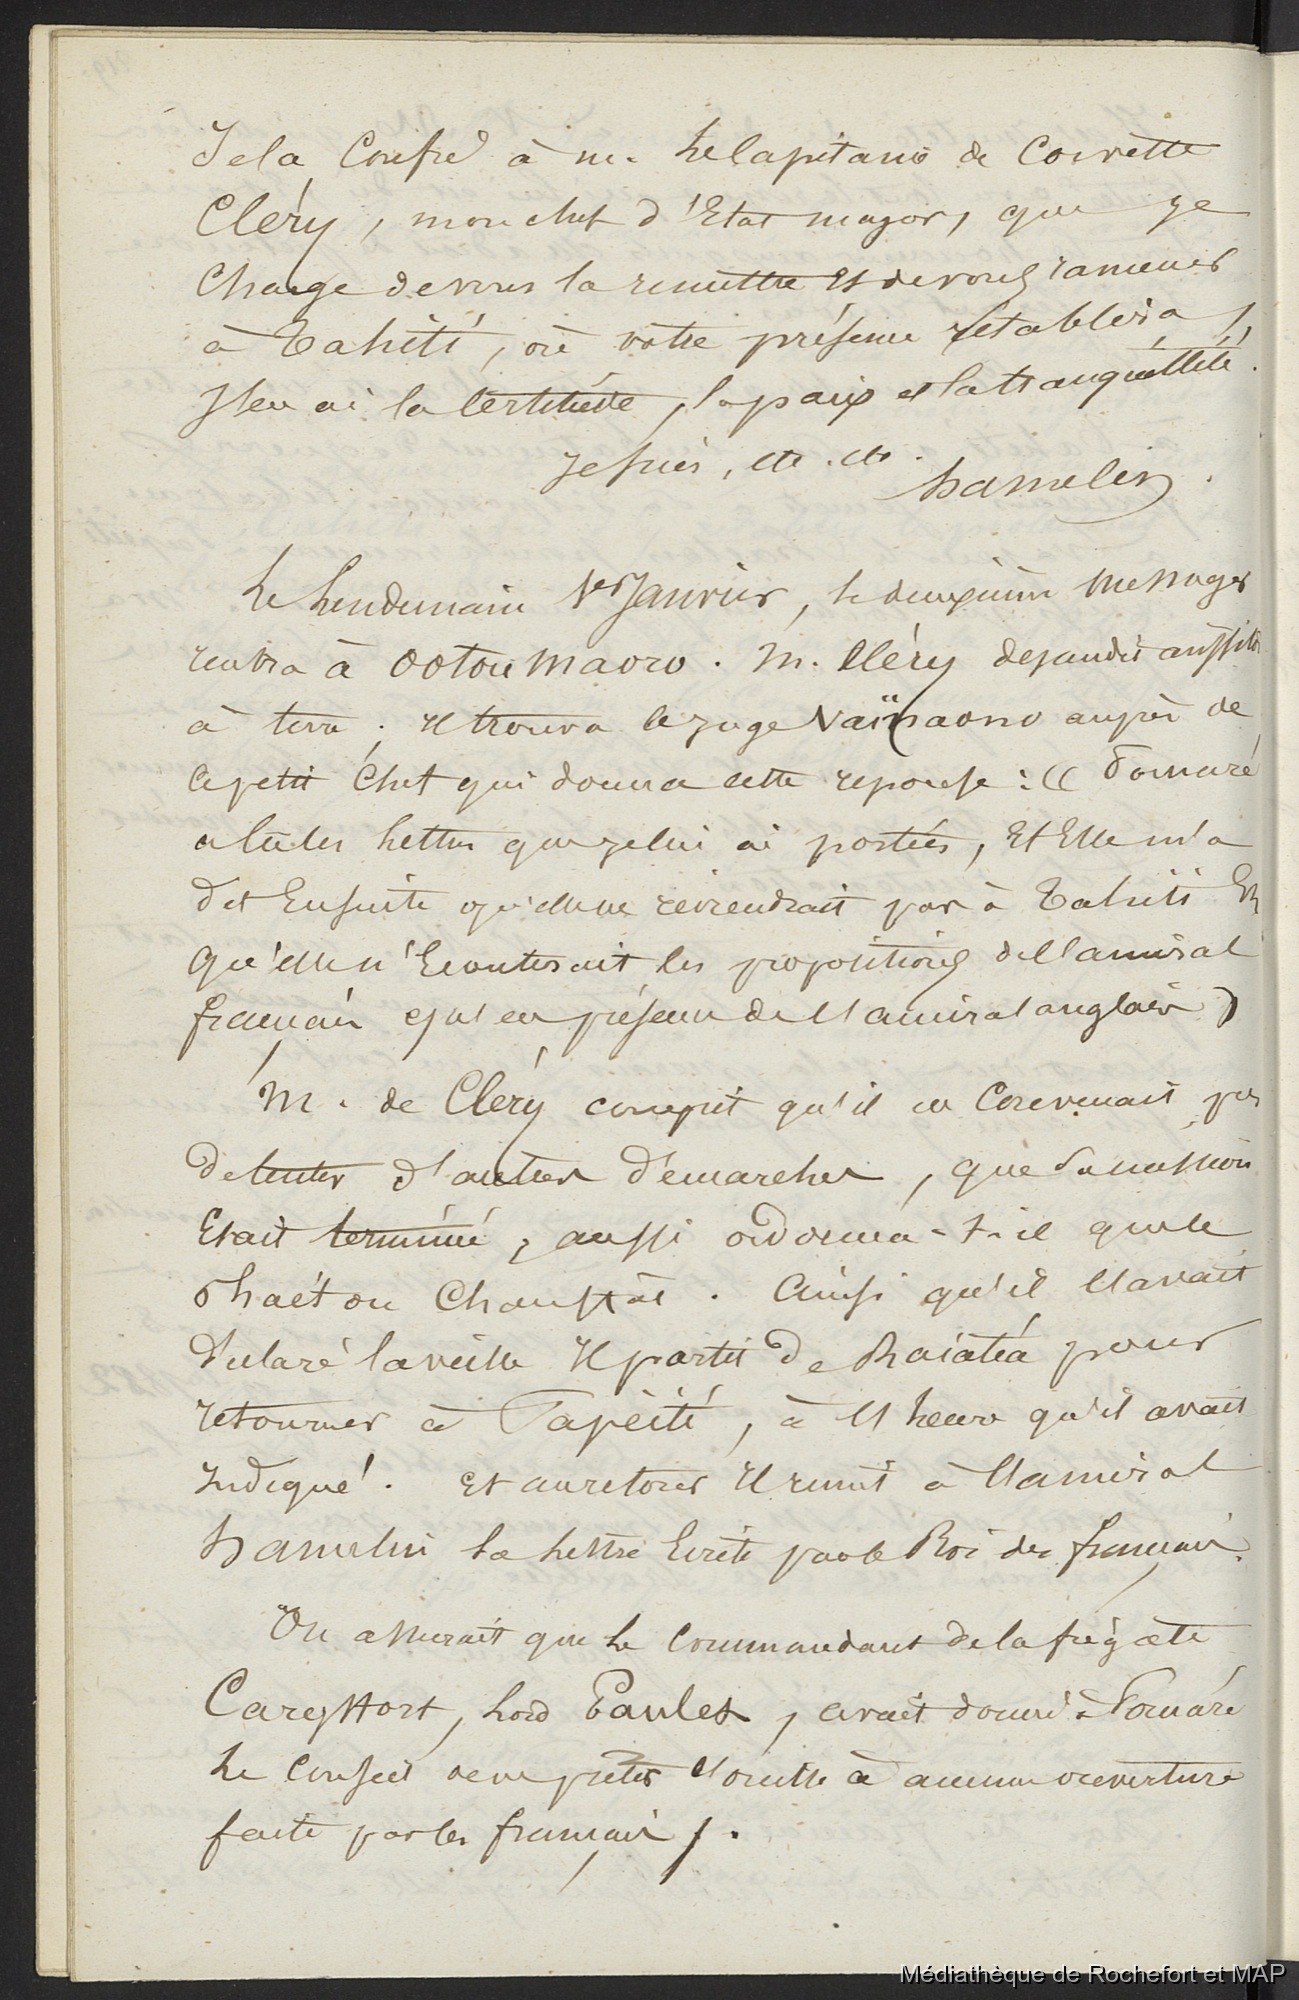 Je la Confie à m. le Capitaine de Corvette
Cléry, mon chef d'Etat major, que je
Charge de vous la remettre Et de vous ramener
à Tahiti, où votre présence rétablira,
J'en ai la Certitude, la paix et la tranquillité.
Je suis, etc. etc.
hamelin.
Le Lendemain 1er Janvier, le deuxième Messager
rentra à Ootou Maoro. M. Cléry descendit aussitôt
à terre. Il trouva le juge Vaïraono auprès de
ce petit Chef qui donna cette reponse : (( Pomaré
a lu les Lettres que je lui ai portées, Et Elle m'a
dit Ensuite qu'elle ne reviendrait pas à Tahiti Et
qu'elle n'Ecouterait les propositions de l'amiral
français qu'en présence de l'amiral anglais )
M. de Cléry comprit qu'il ne Convenait pas
de tenter d'autres démarches, que Sa mission
Etait terminée, aussi ordonna-t-il que le
Phaéton Chauffât. Ainsi qu'il l'avait
déclaré la veille Il partit de Raiatéa pour
retourner à Papéiti, à l'heure qu'il avait
Indiqué. Et au retour Il remit à l'amiral
hamelin La Lettre Ecrite par le Roi des français.
On assurait que Le Commandant de la frégate
Carysfort, Lord Paulet, avait donné à Pomaré
Le Conseil de ne prêter l'oreille à aucune ouverture
faite par les français.
Médiathèque de Rochefort et MAP